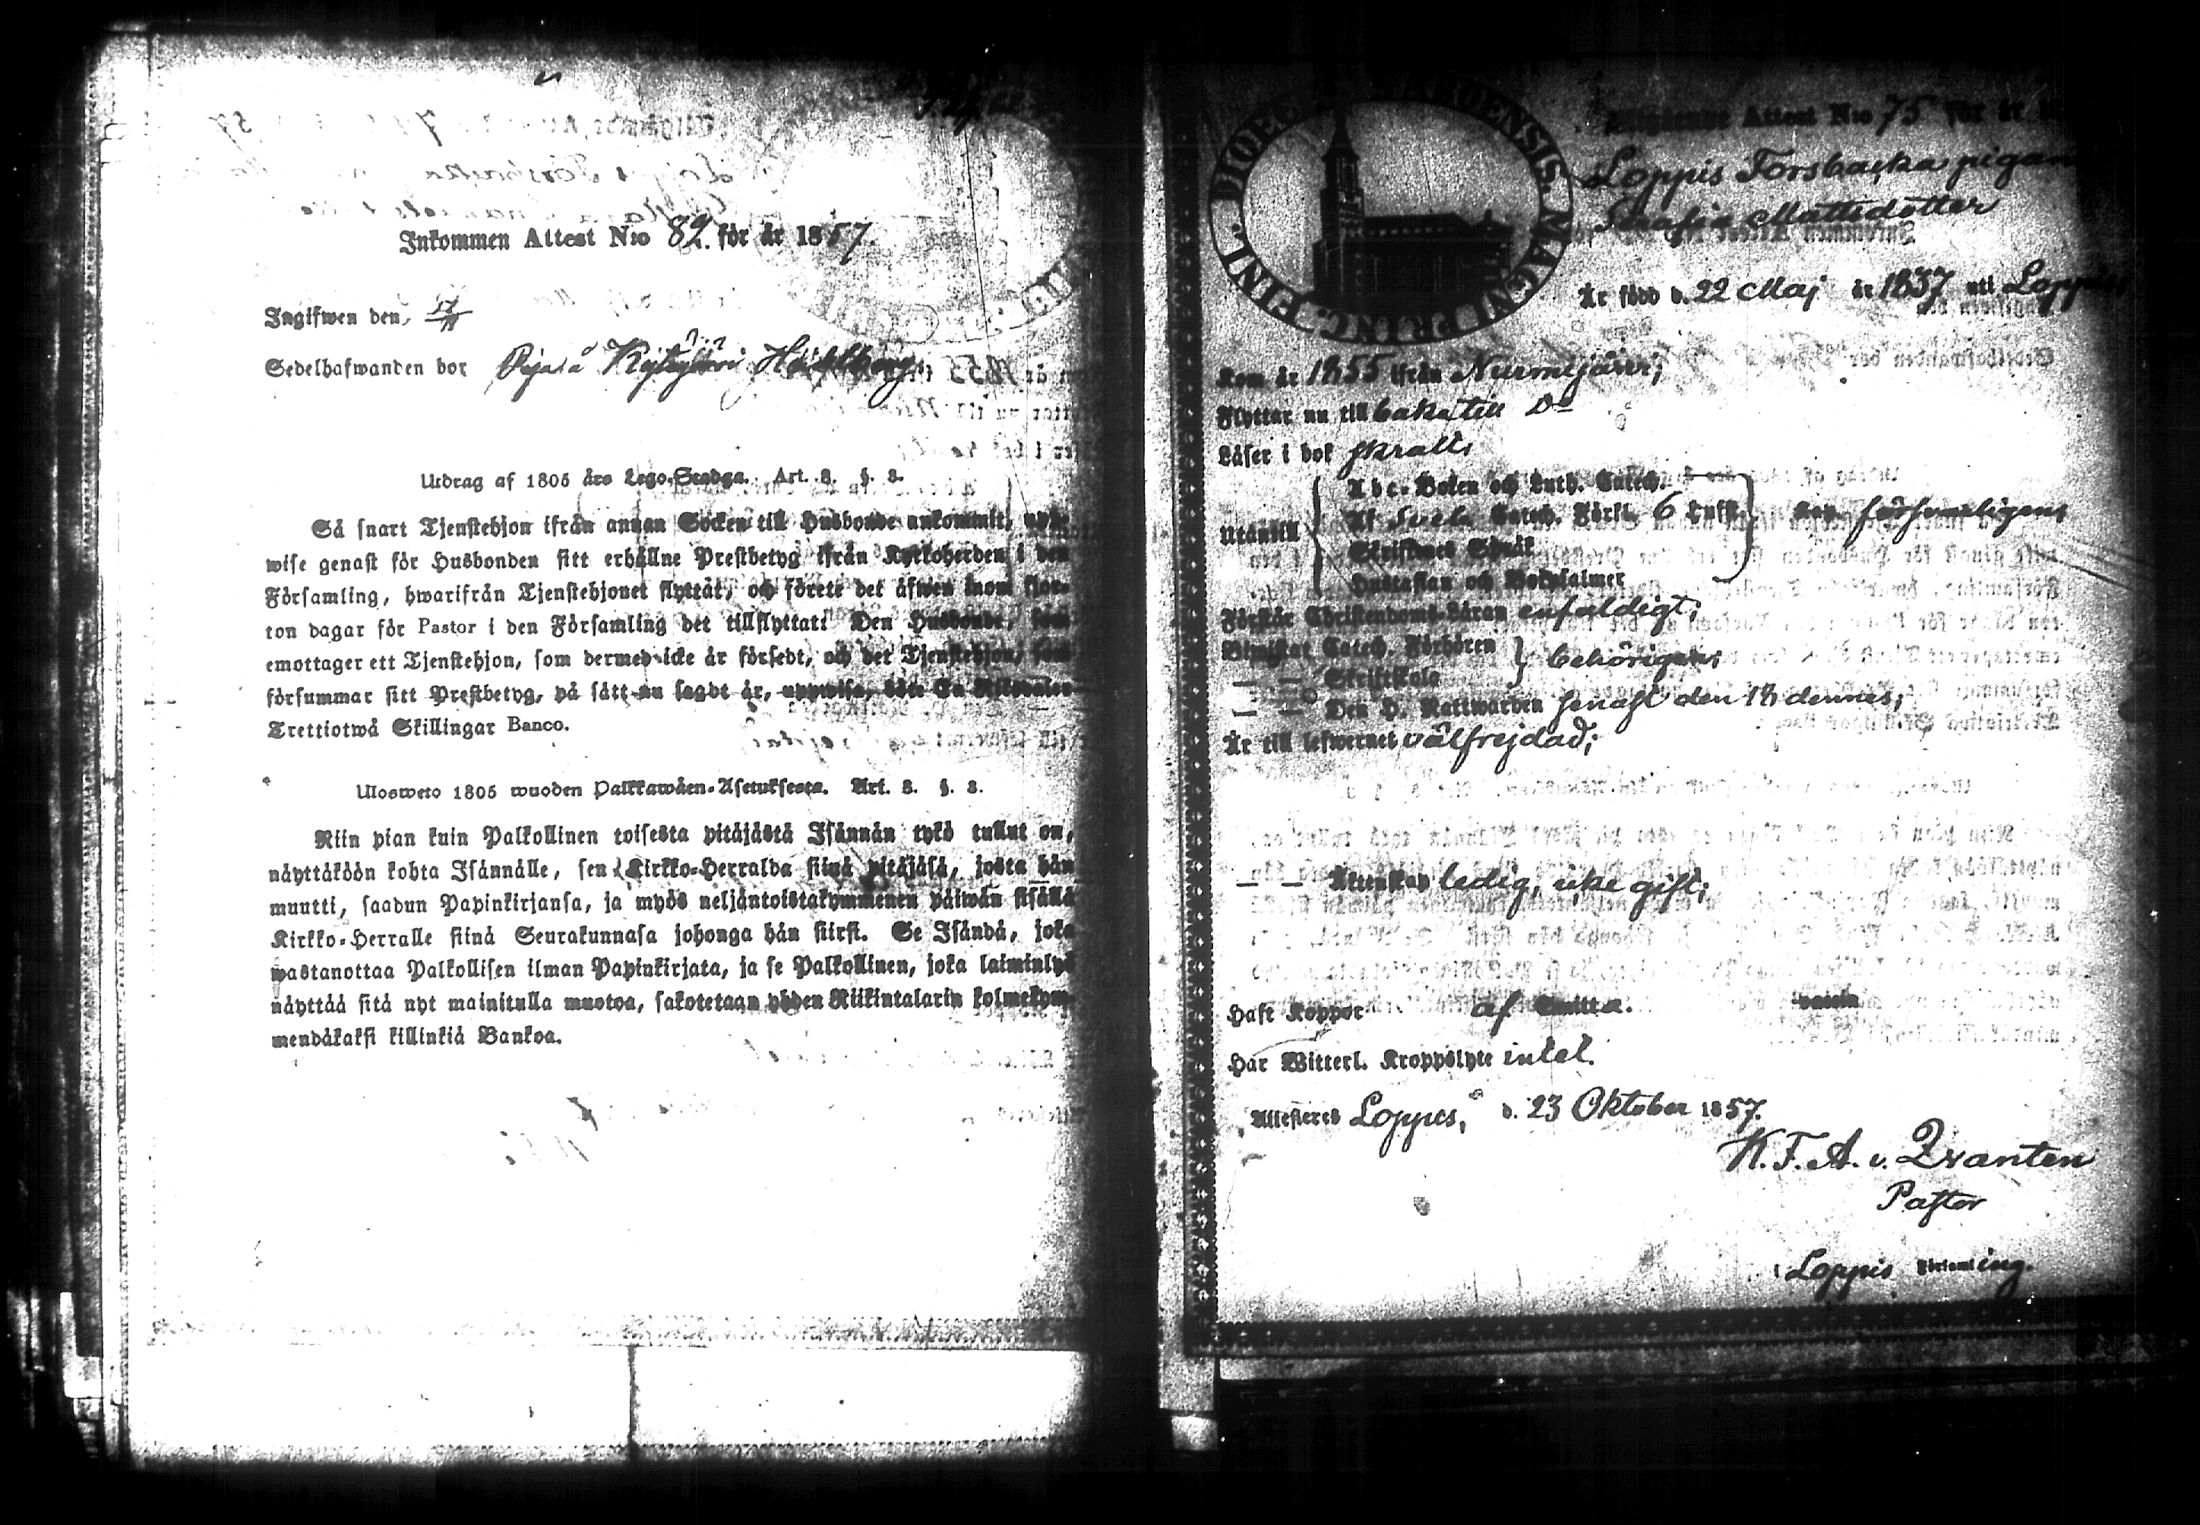 Inkommen Attest N:o 82. för år 1857
Ingifwen den
Sedelhafwanden bor Piga å
Utdrag af 1805 års Lego-Stadga. Art. 8. §. 8.
Så snart Tjenstehjon ifrån annan Socken till Husbonde ankommit, upp-
wise genast för Husbonden sitt erhållne Prestbetyg ifrån Kyrkoherden i den
Församling, hwarifrån Tjenstehjonet flyttat, och förete det äfwen inom fjor-
ton dagar för Pastor i den Församling det tillflyttat. Den Husbonde, som
emottager ett Tjenstehjon, som dermed icke är försedt, och det Tjenstehjon, som
försummar sitt Prestbetyg, på sätt nu sagdt är, uppwisa, böte En Riksdaler
Trettiotwå Skillingar Banco.
Ulosweto 1805 wuoden Palkkawäen-Asetuksesta. Art. 8. §. 8.
Niin pian kuin Palkollinen toisesta pitäjästä Isännän tykö tullut on,
näyttäköön kohta Isännälle, sen Kirkko-Herralda siinä pitäjäsä, josta hän
muutti, saadun Papinkirjansa, ja myös neljäntoistakymmenen päiwän sisällä
Kirkko-Herralle siinä Seurakunnasa johonga hän siirsi. Se Isändä, joka
wastanottaa Palkollisen ilman Papinkirjata, ja se Palkollinen, joka laiminlyö
näyttää sitä nyt mainitulla muotoa, sakotetaan yhden Riikintalarin kolmekym-
mendäkaksi killinkiä Bankoa.
FINL. DIOEC. ABOENSIS. MAGNI PRINC.
Utgående Attest N:o 75 för år
Loppis Forsbacka pigan
Mattsdotter
Är född d. 22 Maj år 1837 uti Loppis,
Kom år 1855 ifrån Nurmijärvi;
Flyttar nu till baka till D:o
Läser i bok
Utantill
Abc-Boken och Luth. Catech.
Af Svebi. Catech. Förkl. 6 Lufk.
Skriftenes Språk
Hustaflan och Botpsalmer
försvarligen;
Förstår Christendoms-Läran enfaldigt;
Biwistat Catech. Förhören
— — Skriftskola
behörigen;
— — Den H. Nattwarden senast den 18 dennes;
Är till lefwernet välfrejdad;
— — Äktenskap ledig, icke gift;
Haft Koppor af Smitta.
Har Witterl. Kroppslyte intet.
Attesteres Loppis, d. 23 Oktober 1857.
K. F. A. v. Qvanten
Pastor
i Loppis Församling.